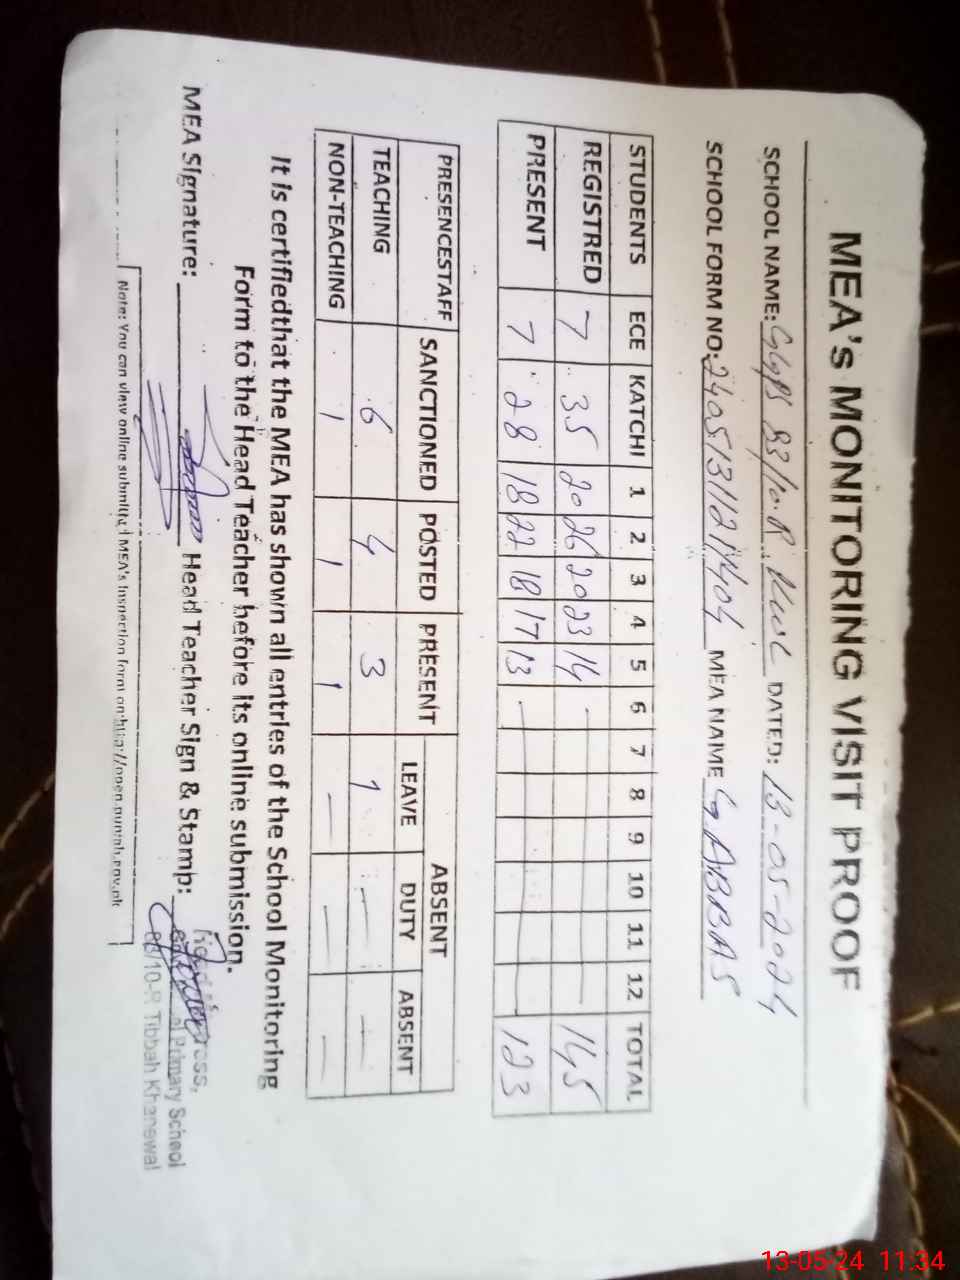 MEA's MONITORING VISIT PROOF
SCHOOL NAME: GGPS 83/10.R KWL DATED: 13-05-2024
SCHOOL FORM NO: MEA NAME G. ABBAS
STUDENTS ECE KATCHI 1 2 3 4 5 6 7 8 9 10 11 12 TOTAL
REGISTRED 7 35 20 26 20 23 14 — 145
PRESENT 7 28 18 22 18 17 13 — 123
PRESENCESTAFF SANCTIONED POSTED PRESENT ABSENT
LEAVE DUTY ABSENT
TEACHING 6 4 3 1 — —
NON-TEACHING 1 1 1 — — —
It is certifiedthat the MEA has shown all entries of the School Monitoring
Form to the Head Teacher before its online submission.
MEA Signature: Head Teacher Sign & Stamp:
Primary School
/10-R Tibbah Khanewal
Note: You can view online submitted MEA's Inspection form on:http://open.punjab.gov.pk
13-05-24 11:34